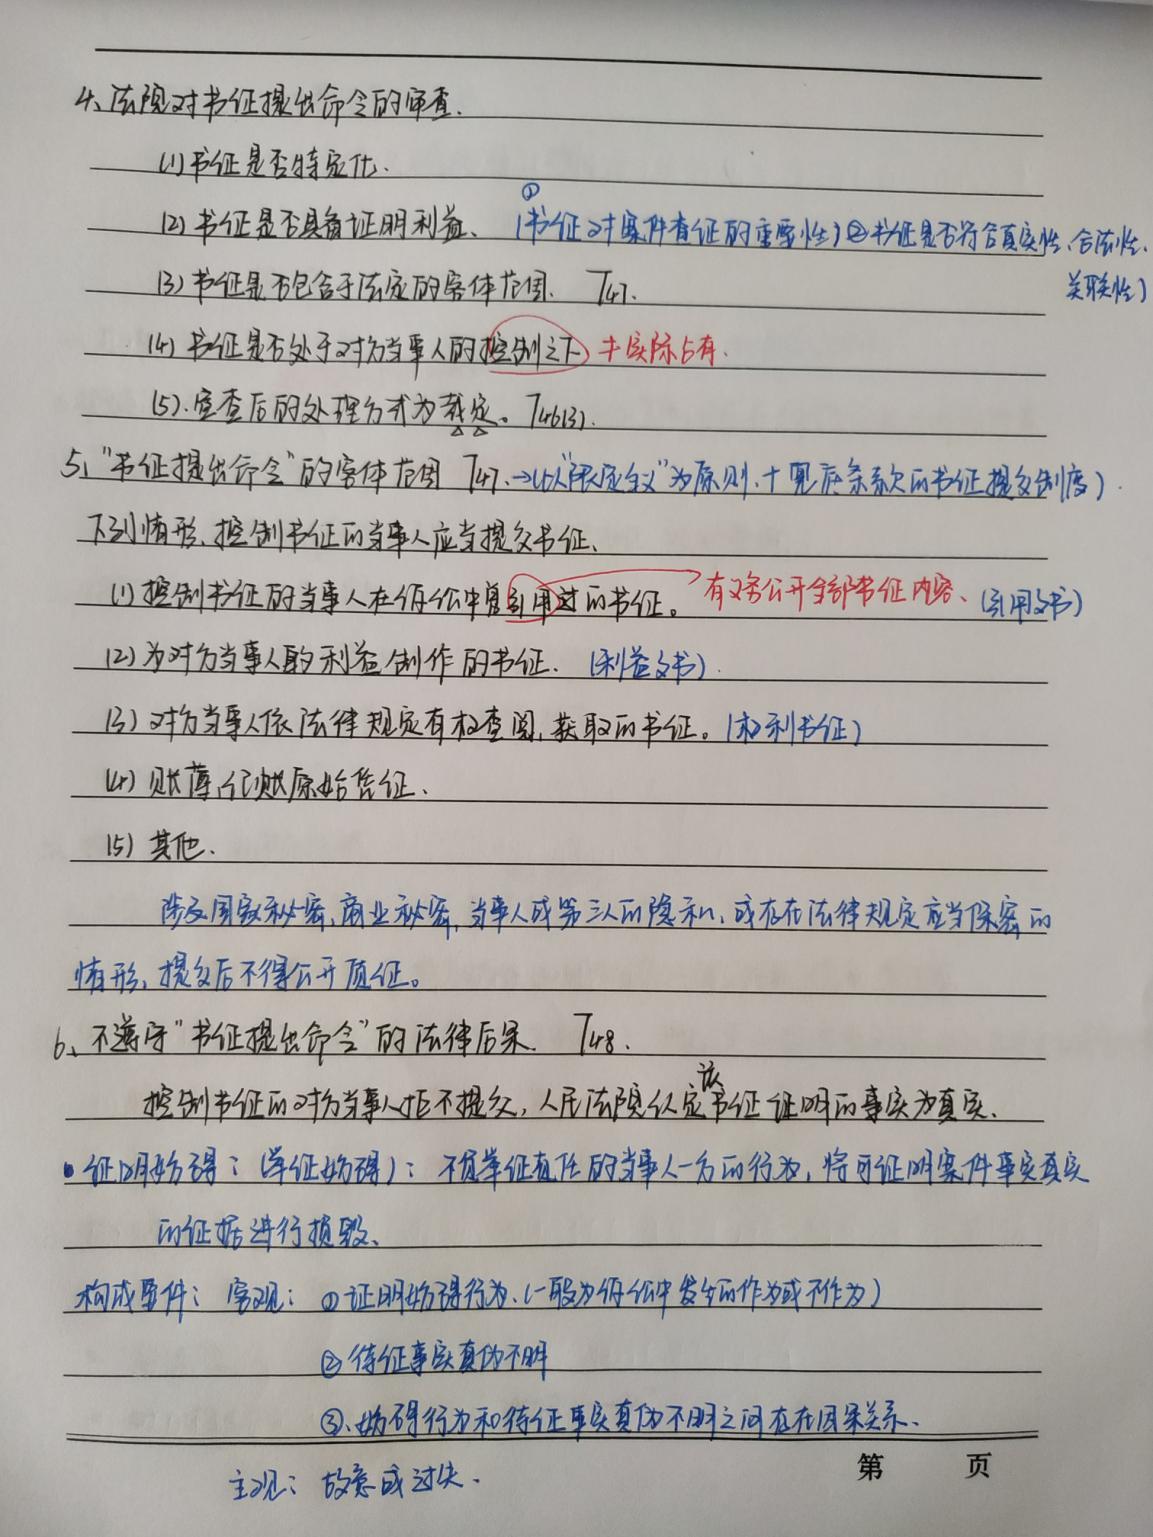 4、法院对书证提出命令的审查.
(1)书证是否特定化.
(2)书证是否具备证明利益、(①书证对案件待证的重要性)②书证是否符合真实性、合法性、
关联性)
(3)书证是否包含于法定的客体范围. T47.
(4)书证是否处于对方当事人的控制之下 ≠实际占有.
(5).审查后的处理方式为裁定。T46(3).
5、"书证提出命令"的客体范围 T47.→(以"限定主义"为原则、+兜底条款的书证提交制度).
下列情形,控制书证的当事人应当提交书证、
(1)控制书证的当事人在诉讼中曾引用过的书证。有义务公开全部书证内容、(引用文书)
(2)为对方当事人的利益制作的书证.(利益文书).
(3)对方当事人依法律规定有权查阅,获取的书证。(权利书证)
(4)账薄、记账原始凭证.
(5)其他.
涉及国家秘密,商业秘密,当事人或第三人的隐私,或存在法律规定应当保密的
情形,提交后不得公开质证。
6、不遵守"书证提出命令"的法律后果. T48.
控制书证的对方当事人拒不提交,人民法院认定该书证证明的事实为真实.
•证明妨碍:(举证妨碍):不负举证责任的当事人一方的行为,将可证明案件事实真实
的证据进行损毁、
构成要件:客观:①证明妨碍行为.(一般为诉讼中发生的作为或不作为)
②待证事实真伪不明
③、妨碍行为和待证事实真伪不明之间存在因果关系.
第 页
主观:故意或过失.